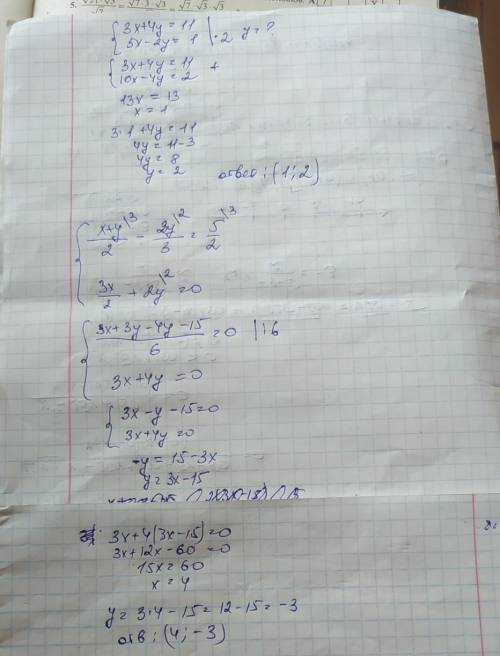 { 3x+4y=11
5x-2y=1 |·2 y=?
{ 3x+4y=11
10x-4y=2 +
13x=13
x=1
3·1+4y=11
4y=11-3
4y=8
y=2
ответ: (1; 2)
{ (x+y)/2 \3 - 2y/3 \2 = 5/2 \3
3x/2 + 2y \2 =0
{ (3x+3y-4y-15)/6 =0 |·6
3x+4y=0
{ 3x-y-15=0
3x+4y=0
-y=15-3x
y=3x-15
3x+4(3x-15)=0
3x+12x-60=0
15x=60
x=4
y=3·4-15=12-15=-3
отв: (4; -3)